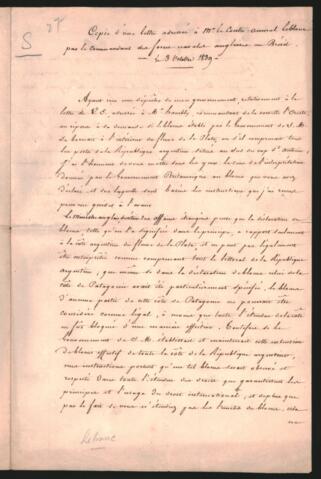 S
Copie d'une lettre adressée à Mr. le Contre-amiral Leblanc
par le Commandant des forces navales anglaises au Brésil
le 3 Octobre 1839
Ayant reçu une dépêche de mon gouvernement, relativement à la
lettre de V. E. adressée à Mr. commandant de la corvette l'
en réponse à sa demande si le blocus établi par le Gouvernement de S. M.
le fleuve de la Plata, ou s'il comprenait tous
les ports de la République argentine situés au sud du cap St. Antoine,
j'ai l'honneur de vous mettre sous les yeux le cas de l'interprétation
donnée par le Gouvernement Britannique au blocus que vous avez
déclaré, et sur laquelle sont basées les instructions que j'ai reçues
pour me guider.
Le ministre anglais des affaires étrangères pense que la déclaration du
blocus, telle qu'on l'a signifiée dans le principe, a rapport seulement
à la côte argentine du fleuve de la Plata, et ne peut pas légalement
être interprétée comme comprenant tout le littoral de la République
Argentine; que même si dans la déclaration de blocus celui de la
côte de Patagonie avait été particulièrement spécifié, le blocus
d'aucune partie de cette côte de Patagonie ne pourrait être
considéré comme légal, à moins que toute l'étendue de la côte
ne fût bloquée d'une manière effective. Toutefois si le
Gouvernement de S. M. établissait et maintenait cette extension
de blocus effectif de toute la côte de la République argentine,
une instruction portant qu'un tel blocus serait observé et
respecté dans toute l'étendue des droits que garantissent les
principes et l'usage du droit international, et
par le fait
Leblanc